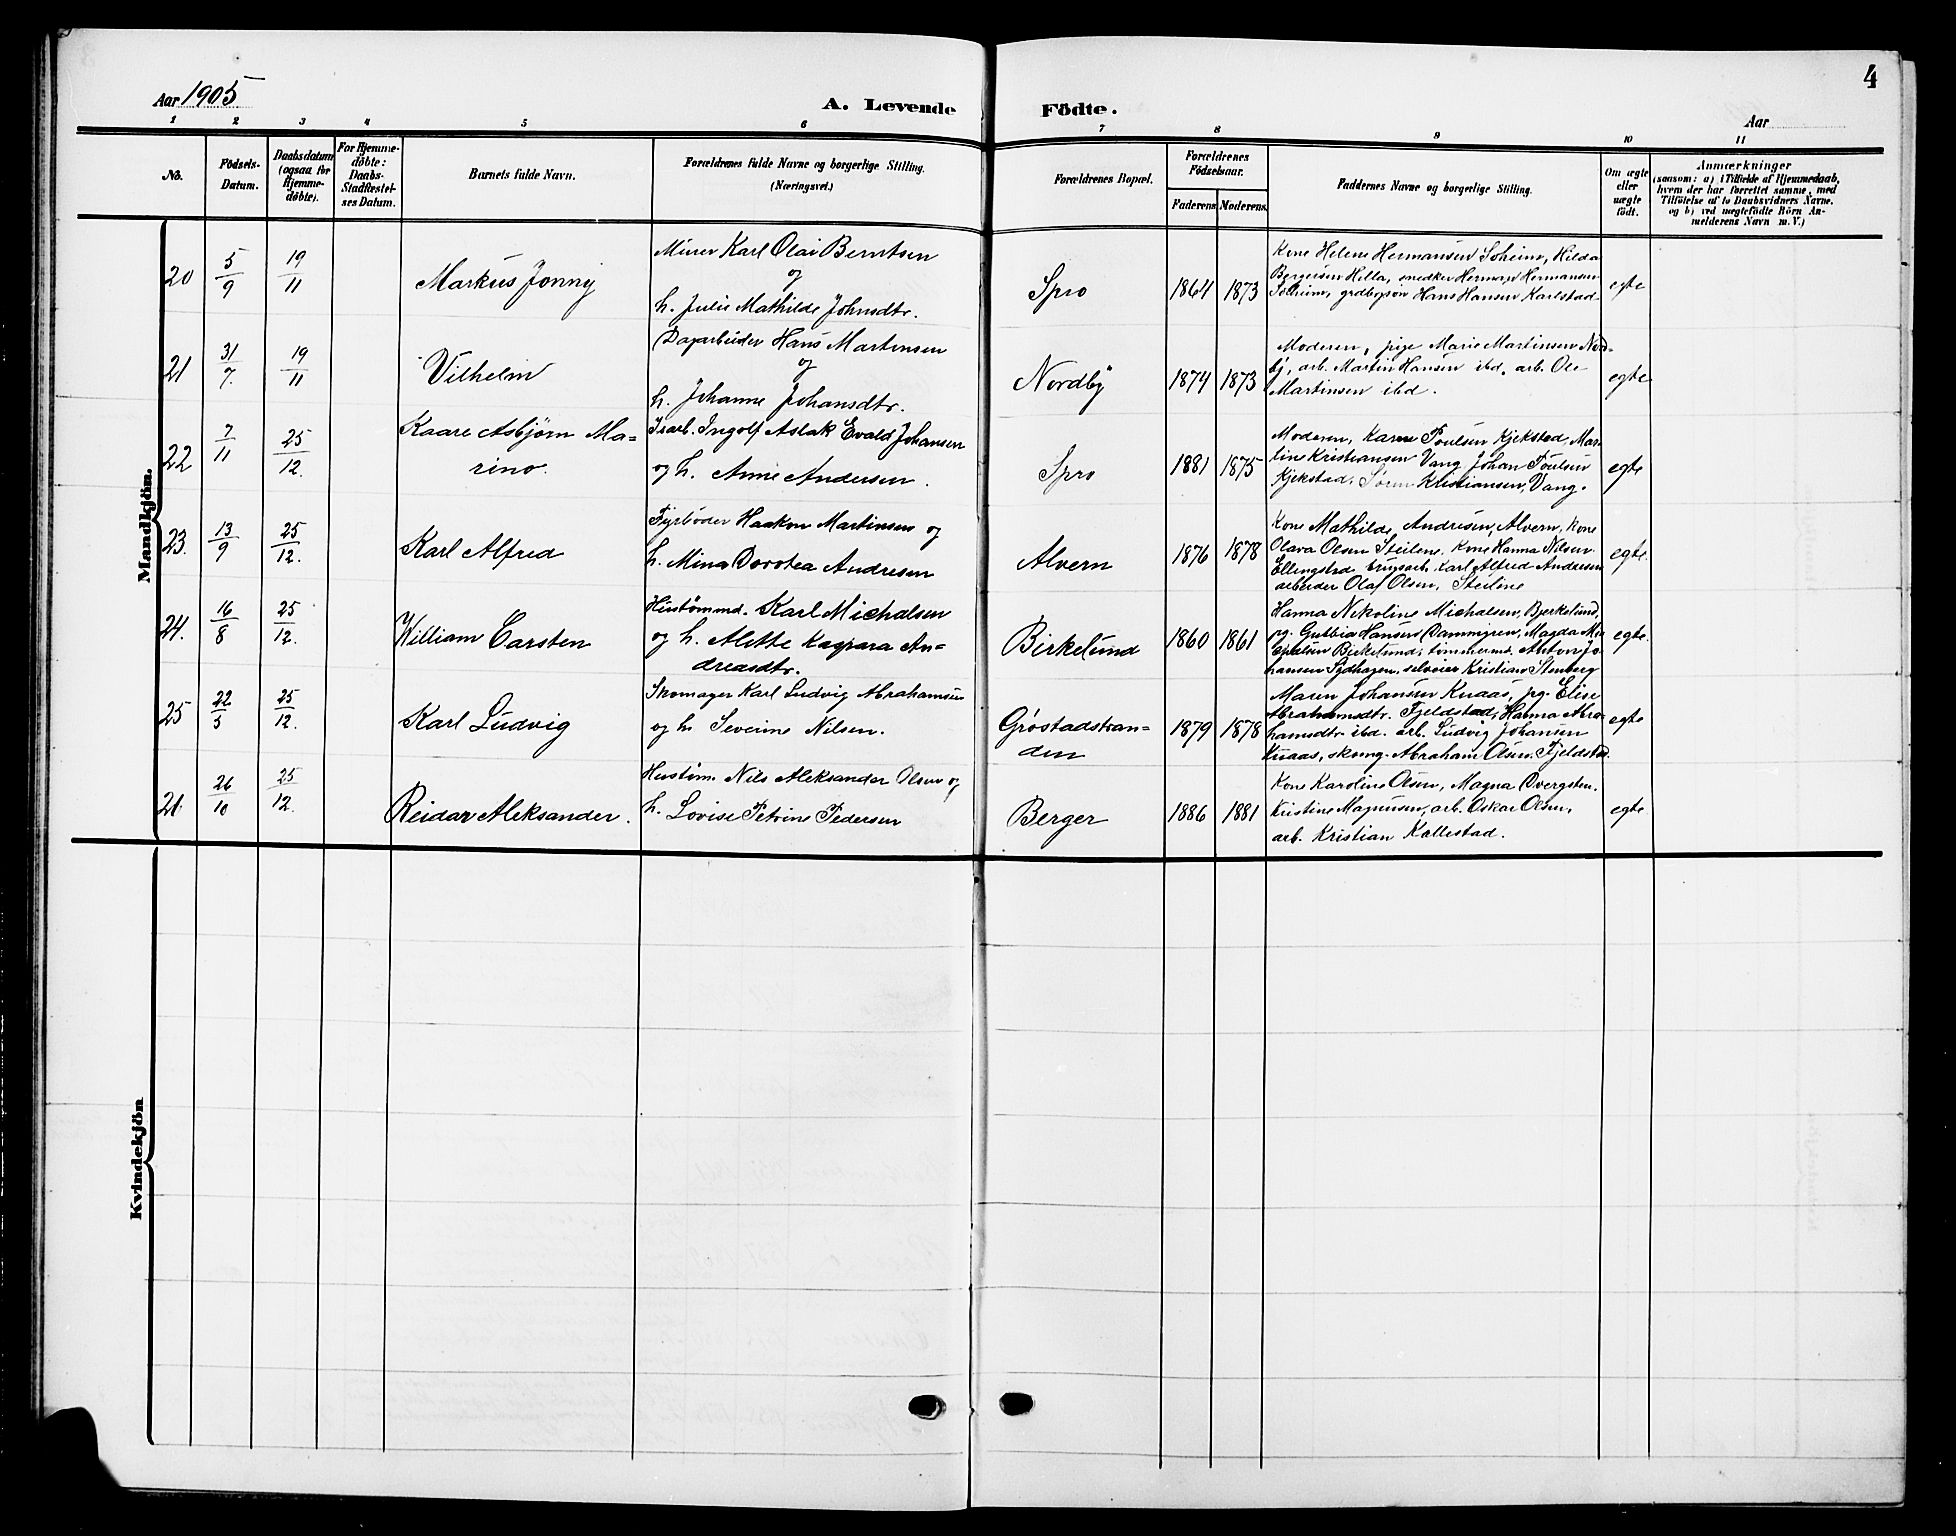 4
Aar 1905
A. Levende Födte.
Aar
1 2 3 4 5 6 7 8 9 10 11
No.
Födsels-
Datum.
Daabsdatum
(ogsaa for
Hjemme-
döbte).
For Hjemme-
döbte:
Daabs-
Stadfæstel-
ses Datum.
Barnets fulde Navn.
Forældrenes fulde Navne og borgerlige Stilling.
(Næringsvei.)
Forældrenes Bopæl.
Forældrenes
Födselsaar.
Faderens Moderens.
Faddernes Navne og borgerlige Stilling.
Om ægte
eller
uægte
født.
Anmærkninger
(saasom: a) i Tilfælde af Hjemmedaab,
hvem der har forrettet samme, med
Tilföielse af to Daabsvidners Navne.
og b) ved uægtefödte Börn An-
melderens Navn m. V.)
Mandkjön.
20 5/9 19/11
Markus Jonny
Murer Karl Olai Berntsen
og
h. Julie Mathilde Johnsdtr.
Spro
1864 1873
Kone Helene Hermansen Solheim, Hilda
Bergersen Hella, snedker Herman Hermansen
Solheim, grdbrgsøn Hans Hansen Karlstad
egte
21 31/7. 19/11
Vilhelm
Dagarbeider Hans Martinsen
og
h. Johanne Johansdtr.
Nordby
1874 1873
Moderen, pige Marie Martinsen Nord-
by, arb. Martin Hansen ibd, arb. Ole
Martinsen ibd.
egte
22 7/11 25/12.
Kaare Asbjørn Ma-
rino.
Isarb. Ingolf Aslak Evald Johansen
og h. Anne Andersen.
Spro
1881 1875
Moderen, Karen Poulsen Kjekstad, Mar-
tine Kristiansen Vang Johan Poulsen
Kjekstad, Søren Kristiansen, Vang.
egte
23. 13/9 25/12.
Karl Alfred
Fyrbøder Haakon Martinsen og
h. Mina Dorotea Andresen
Alvern
1876 1878
Kone Mathilde Andresen, Alvern, Kone
Olava Olsen Steilene, Kone Hanna Nilsen
Ellingstad brugsarb. Karl Alfred Andresen
arbeider Olaf Olsen, Steilene
egte.
24. 16/8 25/12.
William Carsten
Hustømmd. Karl Michalsen
og h. Alette Kaspara An-
dreasdtr.
Birkelund
1860 1861
Hanna Nikoline Michalsen, Bjerkelund,
pg. Gubbia Hansen Dammgren, Magda Mi-
Birkelund, tømmermd. Anton Jo-
hansen Sydhagen, selveier Kristian Stenberg
egte.
25 22/5 25/12.
Karl Ludvig
Skomager Karl Ludvig Abrahamsen
og h. Severine Nilsen.
Grøstadstran-
den
1879 1878
Maren Johansen Knaas, pg. Elise
Abrahamsdtr. Fjeldstad, Hanna Abra-
hamsdtr ibd. arb. Ludvig Johansen
Knaas, skomg. Abraham Olsen, Fjeldstad.
egte
21. 26/10 25/12.
Reidar Aleksander.
Hustøm. Nils Aleksander Olsen og
h. Lovise Petrine Pedersen
Berger
1886 1881
Kone Karoline Olsen, Magna Dvergsten,
Kristine Magnusen, arb. Oskar Olsen,
arb. Kristian Kallestad.
egte
Kvindekjön